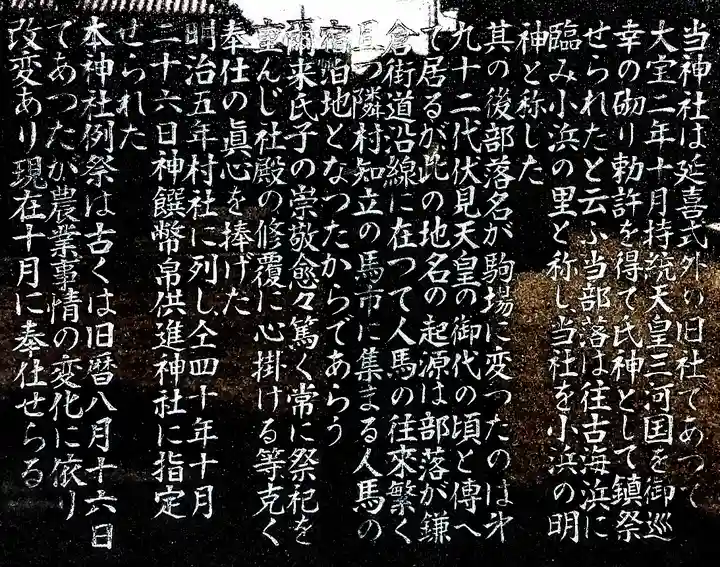 当神社は延喜式外の旧社であつて
大宝二年十月持統天皇三河国を御巡
幸の砌り勅許を得て氏神として鎮祭
せられたと云ふ当部落は往古海浜に
臨み小浜の里と称し当社を小浜の明
神と称した
其の後部落名が駒場に変つたのは才
九十二代伏見天皇の御代の頃と傳へ
て居るが此の地名の起源は部落が鎌
倉街道沿線に在つて人馬の往來繁く
且つ隣村知立の馬市に集まる人馬の
宿泊地となつたからであらう
爾来氏子の崇敬愈々篤く常に祭祀を
重んじ社殿の修覆に心掛ける等克く
奉仕の眞心を捧げた
明治五年村社に列し仝四十年十月
二十六日神饌幣帛供進神社に指定
せられた
本神社例祭は古くは旧暦八月十六日
であつたが農業事情の変化に依り
改変あり現在十月に奉仕せらる